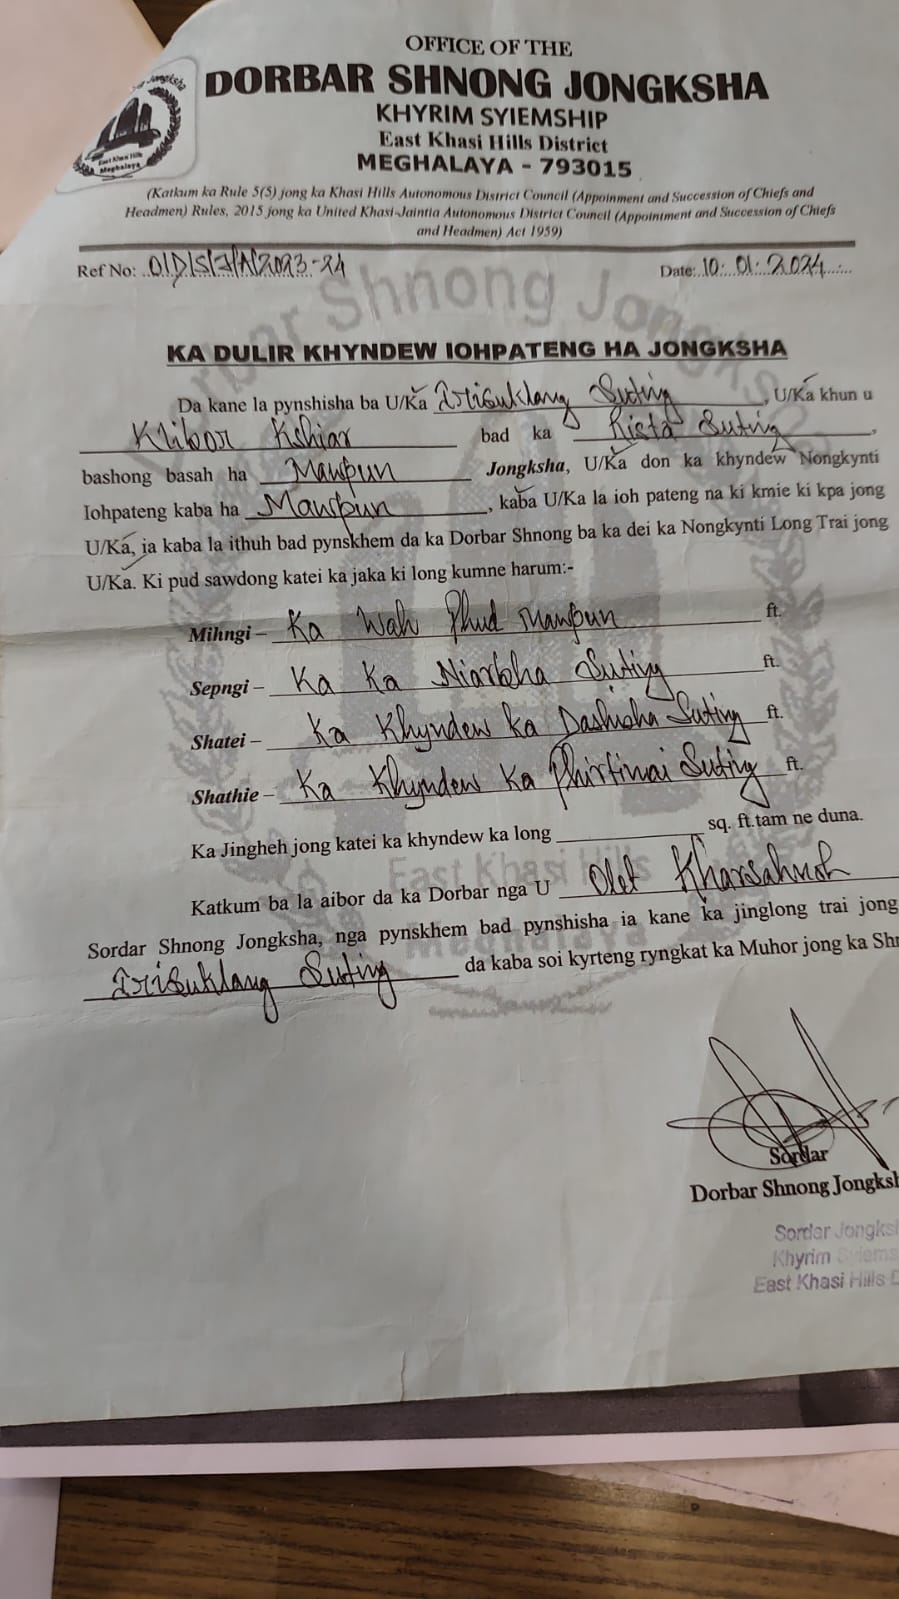 OFFICE OF THE
DORBAR SHNONG JONGKSHA
KHYRIM SYIEMSHIP
East Khasi Hills District
MEGHALAYA - 793015
(Katkum ka Rule 5(5) jong ka Khasi Hills Autonomous District Council (Appoinment and Succession of Chiefs and
Headmen) Rules, 2015 jong ka United Khasi-Jaintia Autonomous District Council (Appointment and Succession of Chiefs
and Headmen) Act 1959)
Ref No: Date: 10.01.2024
KA DULIR KHYNDEW IOHPATENG HA JONGKSHA
Da kane la pynshisha ba U/Ka Irisuklang Suting, U/Ka khun u
Klibor Kshiar bad ka Rista Suting,
bashong basah ha Mawpun Jongksha, U/Ka don ka khyndew Nongkynti
Iohpateng kaba ha Mawpun, kaba U/Ka la ioh pateng na ki kmie ki kpa jong
U/Ka, ia kaba la ithuh bad pynskhem da ka Dorbar Shnong ba ka dei ka Nongkynti Long Trai jong
U/Ka. Ki pud sawdong katei ka jaka ki long kumne harum:-
Mihngi – Ka Wah Phud Mawpun ft.
Sepngi – Ka Ka Niarbha Suting ft.
Shatei – Ka Khyndew ka Dashisha Suting ft.
Shathie – Ka Khyndew Ka Phirtimai Suting ft.
Ka Jingheh jong katei ka khyndew ka long sq. ft.tam ne duna.
Katkum ba la aibor da ka Dorbar nga U Olet Kharsahnoh
Sordar Shnong Jongksha, nga pynskhem bad pynshisha ia kane ka jinglong trai jong
Irisuklang Suting da kaba soi kyrteng ryngkat ka Muhor jong ka
Sordar
Dorbar Shnong
Sordar
Khyrim
East Khasi Hills